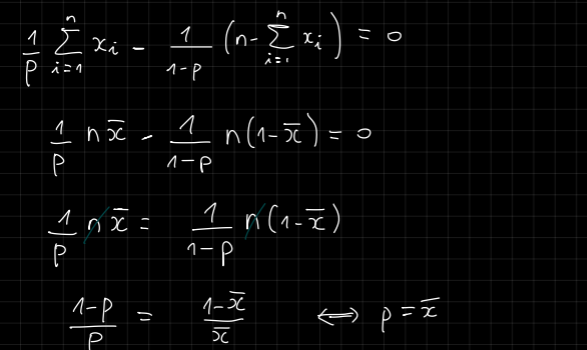 1/p ∑_{i=1}^{n} x_i - 1/(1-p) (n - ∑_{i=1}^{n} x_i) = 0
1/p n x̄ - 1/(1-p) n(1-x̄) = 0
1/p n x̄ = 1/(1-p) n(1-x̄)
(1-p)/p = (1-x̄)/x̄ ⟺ p = x̄